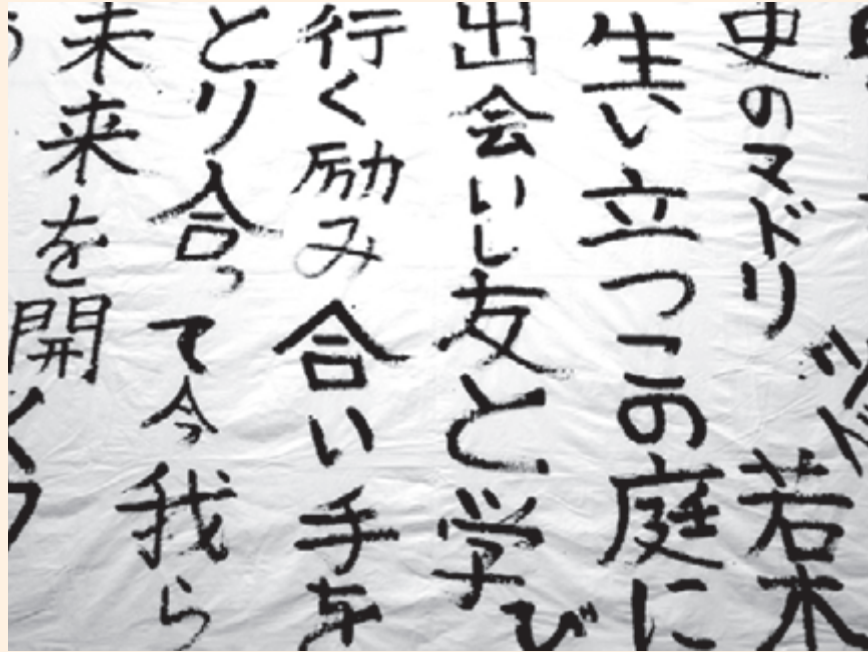 史のマドリ 若木
生い立つこの庭に
出会いし友と学び
行く励み合い手を
とり合って今我ら
未来を開く